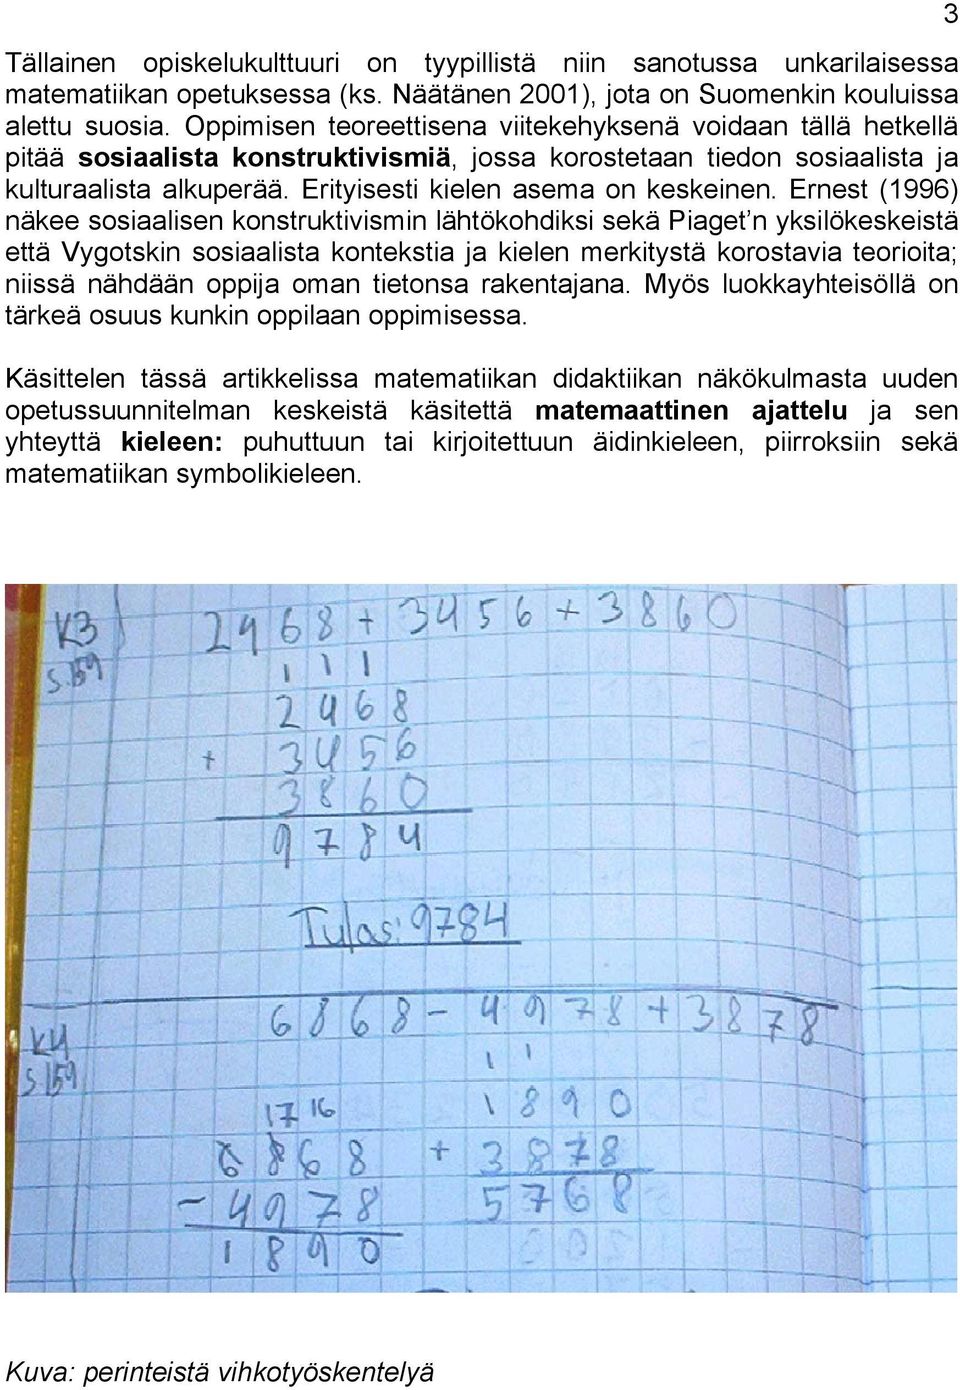 3
Tällainen opiskelukulttuuri on tyypillistä niin sanotussa unkarilaisessa
matematiikan opetuksessa (ks. Näätänen 2001), jota on Suomenkin kouluissa
alettu suosia. Oppimisen teoreettisena viitekehyksenä voidaan tällä hetkellä
pitää sosiaalista konstruktivismiä, jossa korostetaan tiedon sosiaalista ja
kulturaalista alkuperää. Erityisesti kielen asema on keskeinen. Ernest (1996)
näkee sosiaalisen konstruktivismin lähtökohdiksi sekä Piaget’n yksilökeskeistä
että Vygotskin sosiaalista kontekstia ja kielen merkitystä korostavia teorioita;
niissä nähdään oppija oman tietonsa rakentajana. Myös luokkayhteisöllä on
tärkeä osuus kunkin oppilaan oppimisessa.
Käsittelen tässä artikkelissa matematiikan didaktiikan näkökulmasta uuden
opetussuunnitelman keskeistä käsitettä matemaattinen ajattelu ja sen
yhteyttä kieleen: puhuttuun tai kirjoitettuun äidinkieleen, piirroksiin sekä
matematiikan symbolikieleen.
K3) 2468 + 3456 + 3860
s.159 1 1 1
2468
+ 3456
3860
9784
Tulos: 9784
6868 - 4978 + 3878
K4
s.159
1 1
17 16 1890
6868 + 3878
- 4978 5768
1890
Kuva: perinteistä vihkotyöskentelyä